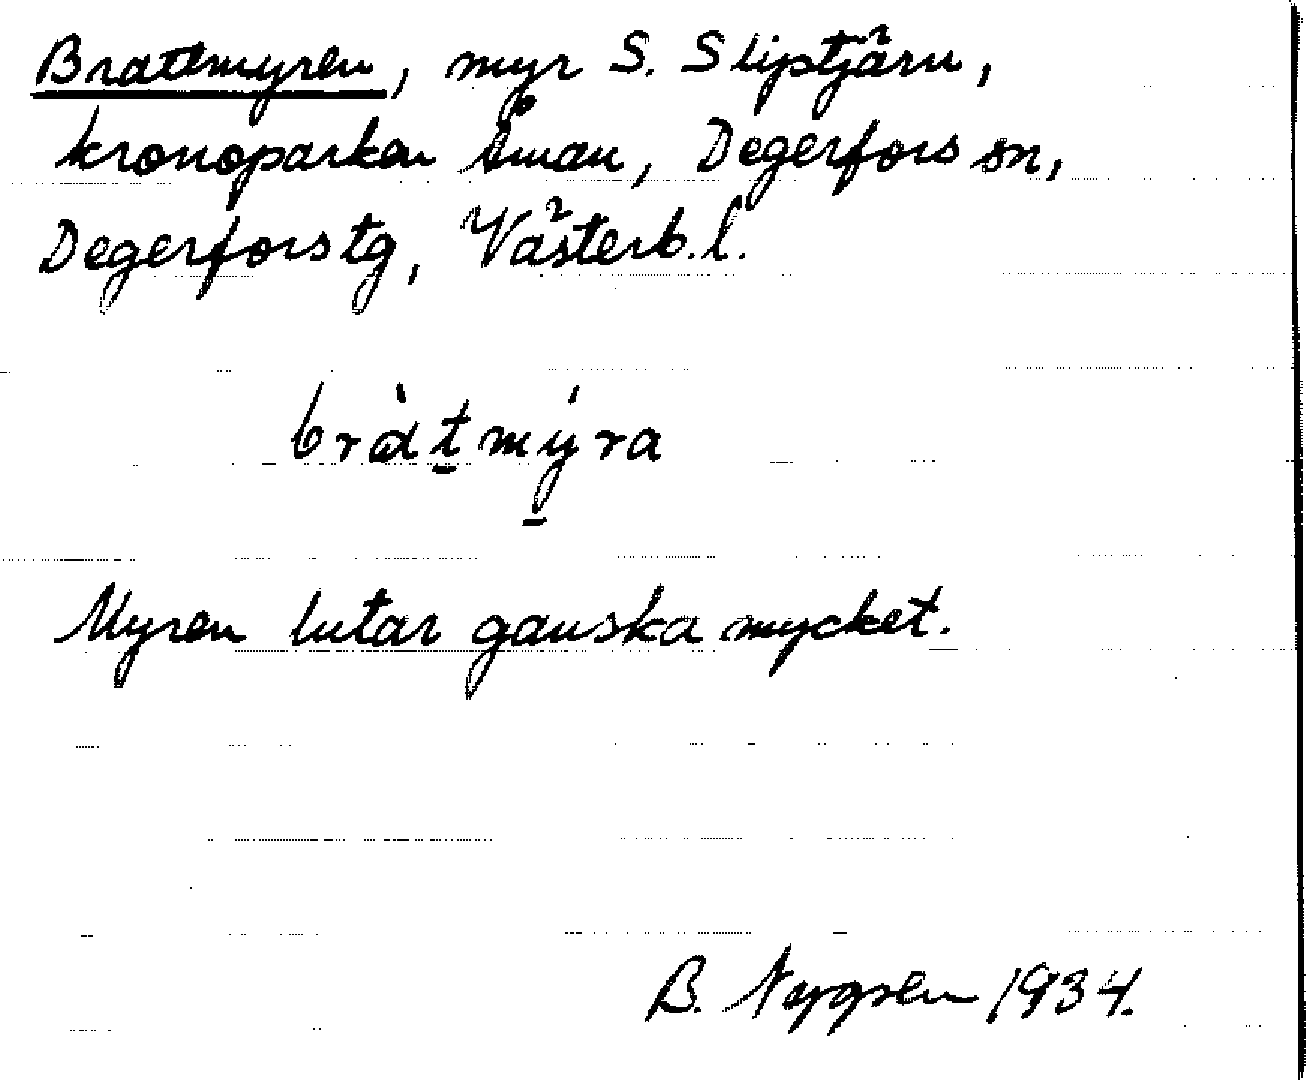 Brattmyren, myr S. Sliptjärn,
kronoparken Åman, Degerfors sn,
Degerfors tg, Västerb. l.
bràt̠mý̠ra
Myren lutar ganska mycket.
B. Nygren 1934.